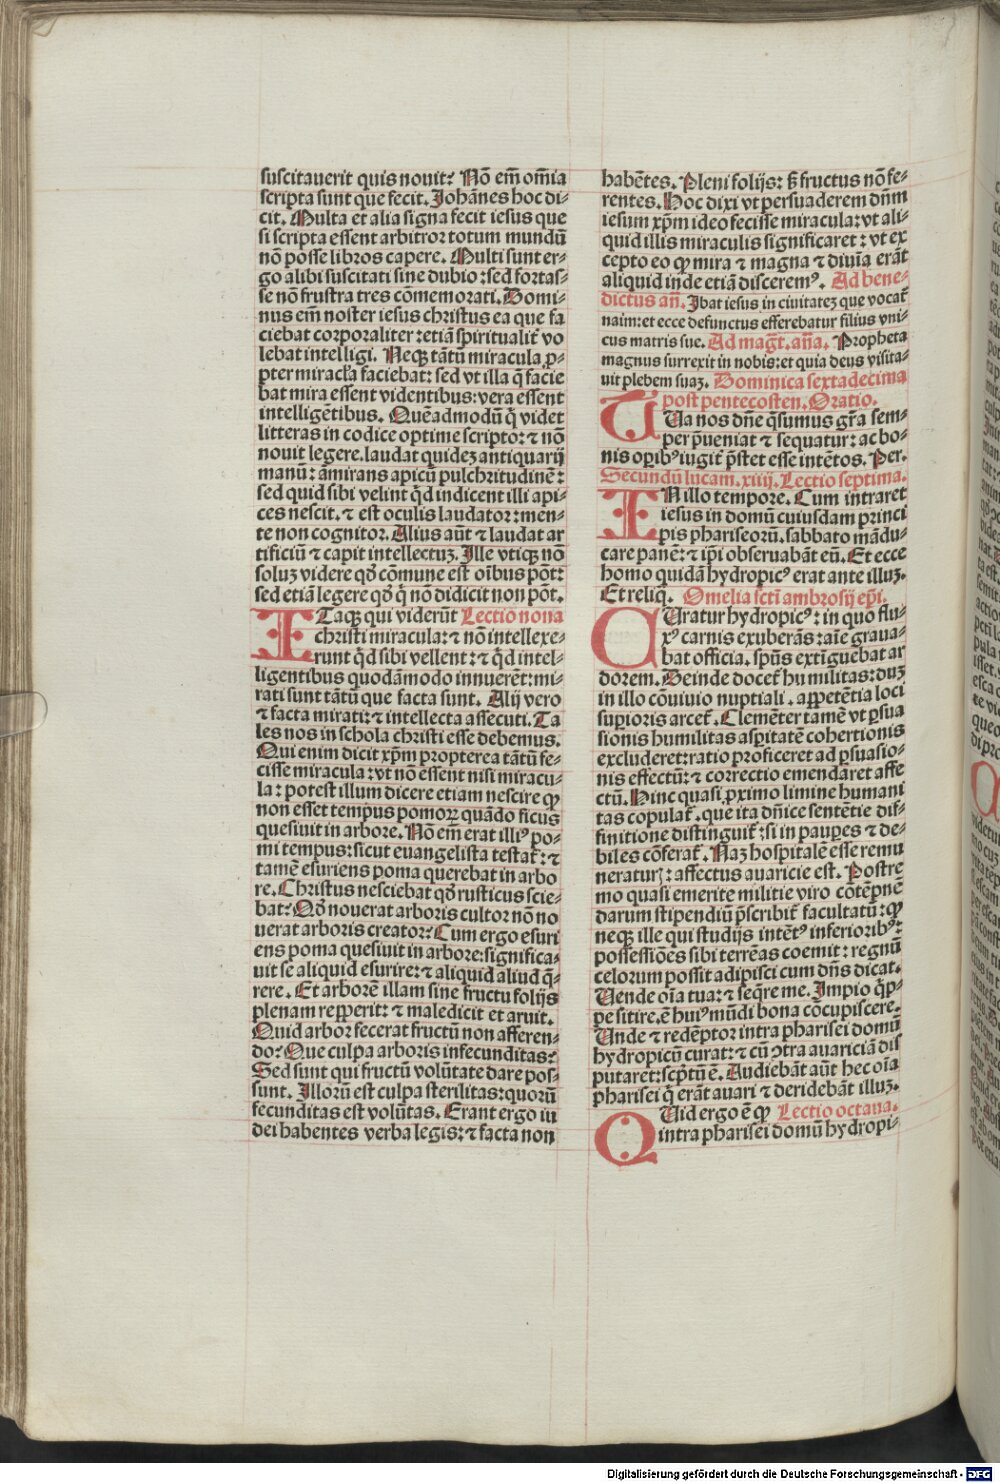 suscitauerit quis nouit? Nō em̄ om̄ia
scripta sunt que fecit. Johānes hoc di-
cit. Multa et alia signa fecit iesus que
si scripta essent arbitror totum mundū
nō posse libros capere. Multi sunt er-
go alibi suscitati sine dubio: sed fortas-
se nō frustra tres cōmemorati. Domi-
nus em̄ noster iesus christus ea que fa
ciebat corporaliter: etiā spiritualit̄ vo
lebat intelligi. Neqꝫ tātū miracula ꝓ-
pter miacl̄a faciebat: sed vt illa q̄ facie
bat mira essent videntibus: vera essent
intelligētibus. Quēadmodū q̄ videt
litteras in codice optime scripto: ⁊ nō
nouit legere. laudat quideꝫ antiquarij
manū: āmirans apicū pulchritudinē:
sed quid sibi velint q̄d indicent illi api-
ces nescit. ⁊ est oculis laudator: men-
te non cognitor. Alius aūt ⁊ laudat ar
tificiū ⁊ capit intellectuꝫ. Ille vtiqꝫ nō
soluꝫ videre qd̄ cōmune est oībus pōt:
sed etiā legere qd̄ q̄ nō didicit non pōt.
ITaqꝫ qui viderūt Lectio nona
christi miracula: ⁊ nō intellexe-
runt q̄d sibi vellent: ⁊ q̄d intel-
ligentibus quodāmodo innuerēt: mi-
rati sunt tātū que facta sunt. Alij vero
⁊ facta mirati: ⁊ intellecta assecuti. Ta
les nos in schola christi esse debemus.
Qui enim dicit xp̄m propterea tātū fe-
cisse miracula: vt nō essent nisi miracu-
la: potest illum dicere etiam nescire ꝙ
non esset tempus pomoꝝ quādo ficus
quesiuit in arbore. Nō em̄ erat illiꝰ po-
mi tempus: sicut euangelista testat̄: ⁊
tamē esuriens poma querebat in arbo
re. Christus nesciebat qd̄ rusticus scie-
bat? Qd̄ nouerat arboris cultor nō no
uerat arboris creator? Cum ergo esuri
ens poma quesiuit in arbore: significa-
uit se aliquid esurire: ⁊ aliquid aliud q̄-
rere. Et arborē illam sine fructu folijs
plenam repperit: ⁊ maledicit et aruit.
Quid arbor fecerat fructū non afferen-
do? Que culpa arboris infecunditas?
Sed sunt qui fructū volūtate dare pos-
sunt. Illorū est culpa sterilitas: quorū
fecunditas est volūtas. Erant ergo iu
dei habentes verba legis: ⁊ facta non
habētes. Pleni folijs: s̄ fructus nō fe-
rentes. Hoc dixi vt persuaderem dn̄m
iesum xp̄m ideo fecisse miracula: vt ali-
quid illis miraculis significaret: vt ex
cepto eo ꝙ mira ⁊ magna ⁊ diuīa erāt
aliquid inde etiā disceremꝰ. Ad bene-
dictus an̄. Ibat iesus in ciuitateꝫ que vocat̄
naim: et ecce defunctus efferebatur filius vni-
cus matris sue. Ad maḡt. an̄a. Propheta
magnus surrexit in nobis: et quia deus visita-
uit plebem suaꝫ. Dominica sextadecima
post pentecosten. Oratio.
TUa nos dn̄e q̄sumus gr̄a sem-
per p̄ueniat ⁊ sequatur: ac bo-
nis oꝑibꝰ iugit̄ p̄stet esse intētos. Per.
Secundū lucam. xiiij. Lectio septima.
IN illo tempore. Cum intraret
iesus in domū cuiusdam princi
pis phariseorū. sabbato mādu-
care panē: ⁊ ip̄i obseruabāt eū. Et ecce
homo quidā hydropicꝰ erat ante illuꝫ.
Et reliq̄. Omelia sctī ambrosij ep̄i.
CUratur hydropicꝰ: in quo flu-
xꝰ carnis exuberās: aīe graua-
bat officia. spūs extīguebat ar
dorem. Deinde docet̄ humilitas: duꝫ
in illo cōuiuio nuptiali. appetētia loci
suꝑioris arcet̄. Clemēter tamē vt ꝑsua
sionis humilitas asꝑitatē cohertionis
excluderet: ratio proficeret ad ꝑsuasio-
nis effectū: ⁊ correctio emendaret affe
ctū. Hinc quasi ꝓximo limine humani
tas copulat̄. que ita dn̄ice sentētie dif-
finitione distinguit̄: si in pauꝑes ⁊ de-
biles cōferat̄. Naꝫ hospitalē esse remu
neraturꝭ: affectus auaricie est. Postre
mo quasi emerite militie viro cōtēpnē
darum stipendiū p̄scribit̄ facultatū: ꝙ
neqꝫ ille qui studijs intētꝰ inferioribꝰ:
possessiōes sibi terrēas coemit: regnū
celorum possit adipisci cum dn̄s dicat.
Uende oīa tua: ⁊ seq̄re me. Impio q̄p-
pe sitire. ē huiꝰ mūdi bona cōcupiscere.
Unde ⁊ redēptor intra pharisei domū
hydropicū curat: ⁊ cū ꝯtra auariciā dis
putaret: scp̄tū ē. Audiebāt aūt hec oīa
pharisei q̄ erāt auari ⁊ deridebāt illuꝫ.
QUid ergo ē ꝙ Lectio octaua.
intra pharisei domū hydropi-
Digitalisierung gefördert durch die Deutsche Forschungsgemeinschaft - DFG